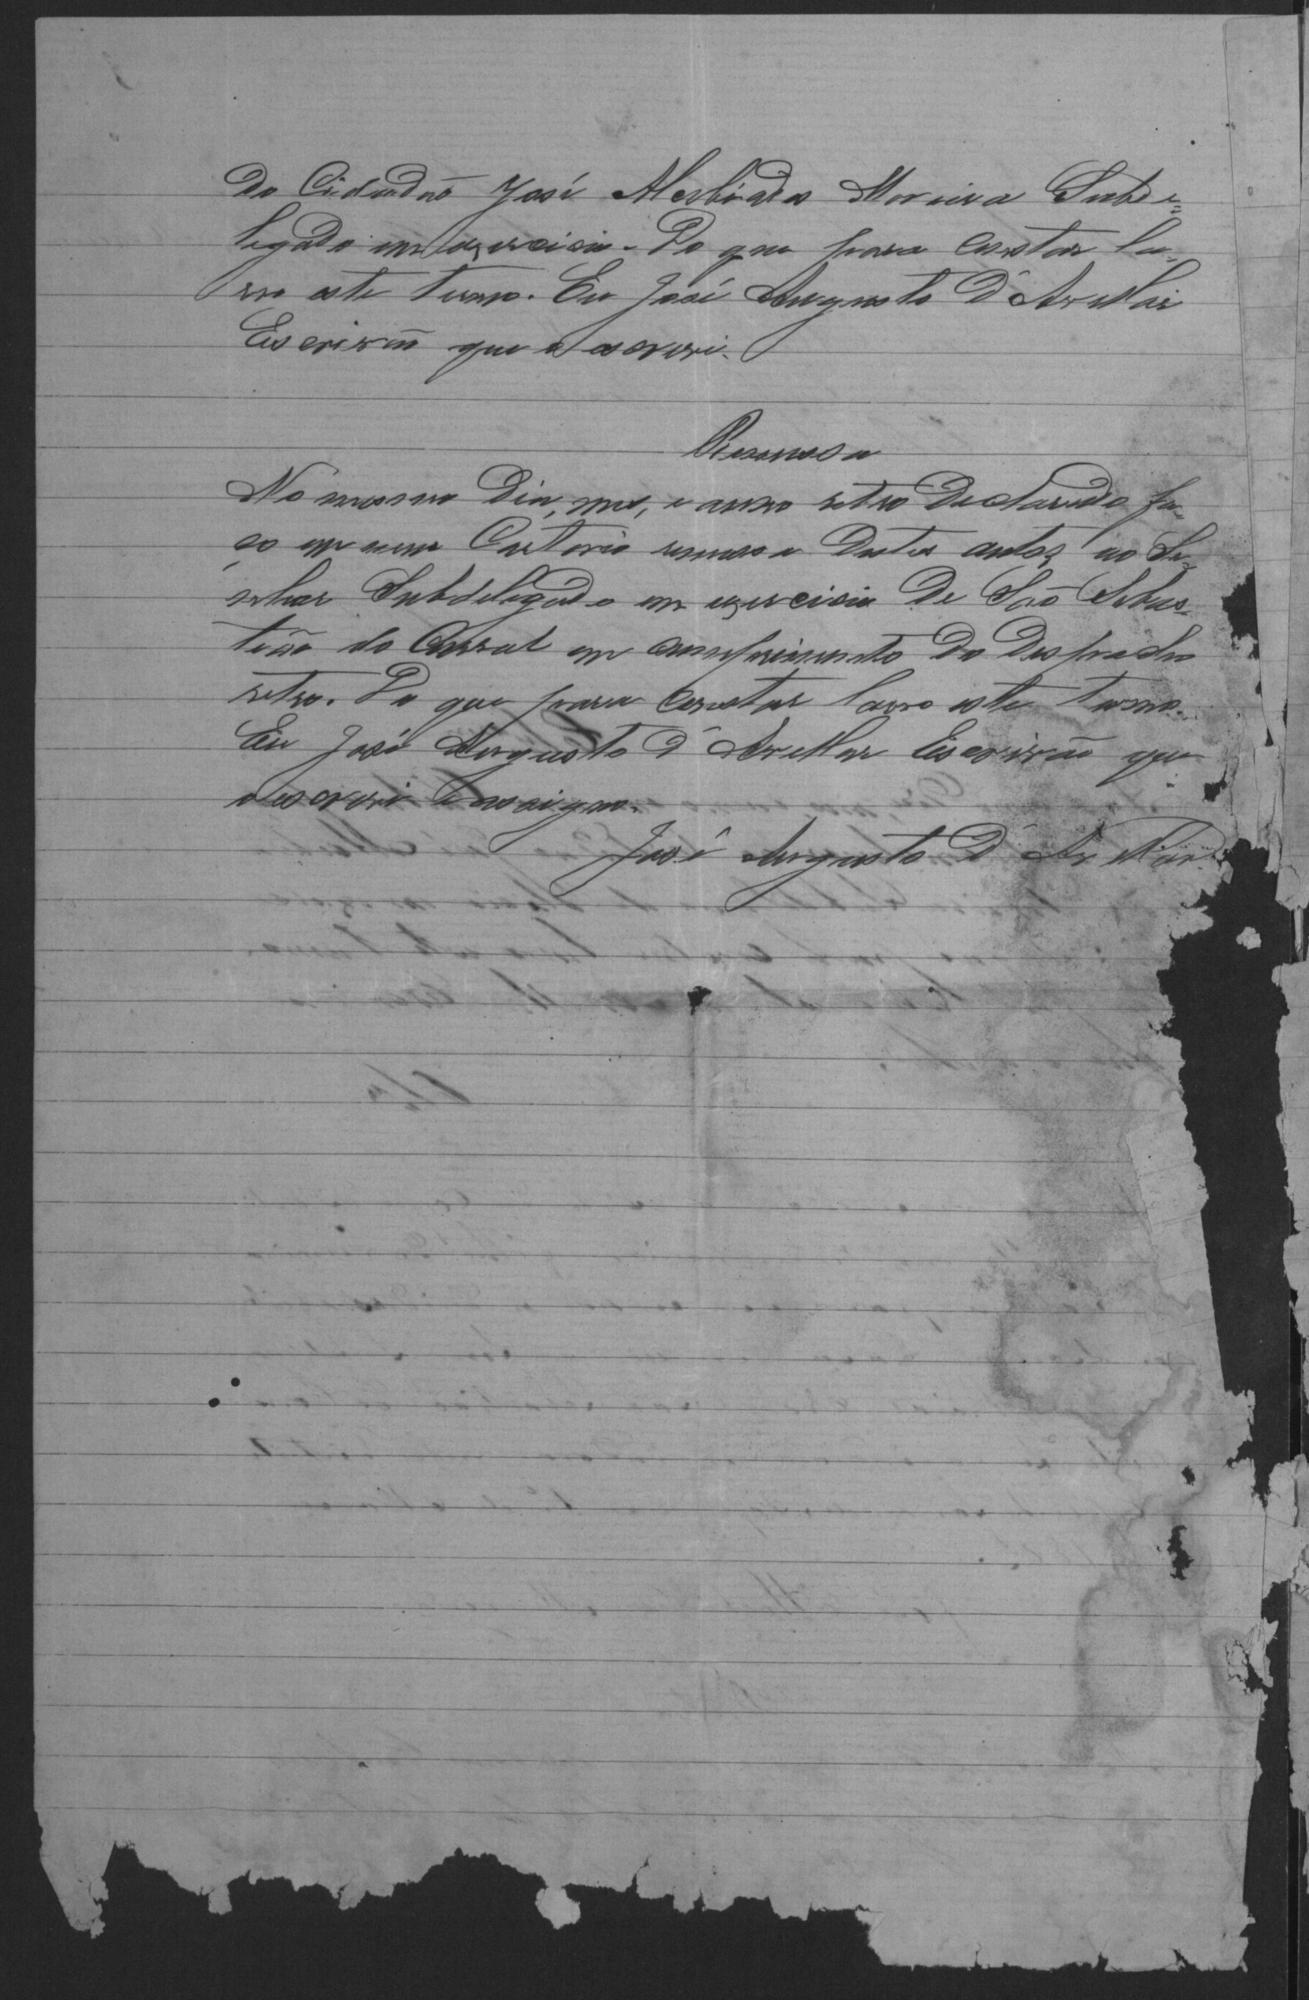 do Cidadão José Alcebiades Moreira Subde=
legado em exercicio. Do que para constar la-
vro este termo. Eu José Augusto d'Avellar
Escrivão que o escrevi.
Remessa
No mesmo dia, mes, e anno retro declarado fa-
ço em meu Cartorio remessa destes autos ao Se-
nhor Subdelegado em exercicio de São Sebas-
tião do Curral em cumprimento do despacho
retro. Do que para constar lavro este termo.
Eu José Augusto d'Avellar Escrivão que
o escrevi e assigno.
José Augusto d'Avellar